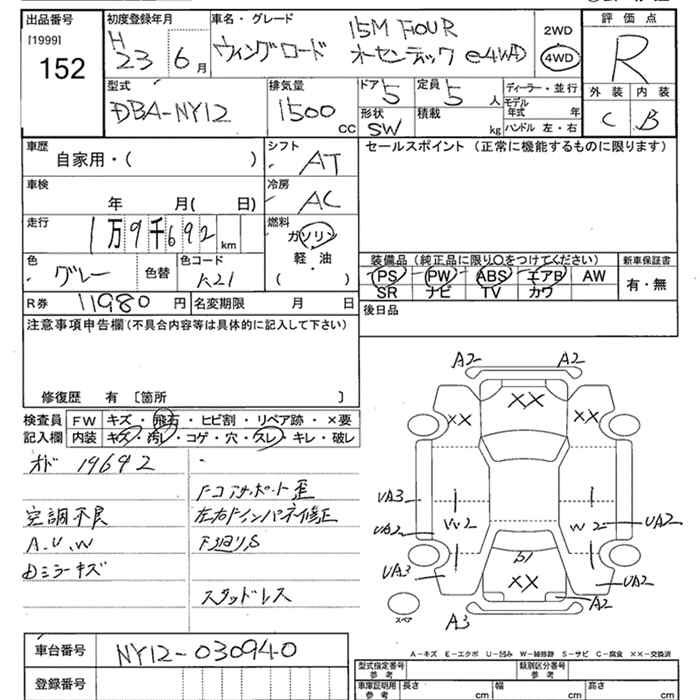 出品番号
[1999]
152
初度登録年月
H
23 6月
車名・グレード
15M FOUR
ウィングロード オーセンティック e-4WD
2WD
4WD
評価点
R
外装 内装
C B
型式
DBA-NY12
排気量
1500 CC
ドア 5
定員 5 人
形状 SW
積載 kg
ディーラー・並行
モデル年式 年
ハンドル 左・右
車歴
自家用・( )
シフト
AT
セールスポイント (正常に機能するものに限ります)
車検
年 月( 日)
冷房
AC
走行
1万9千692 km
燃料
ガソリン
軽・油
( )
色
グレー
色替
色コード
K21
装備品(純正品に限り○をつけてください)
PS PW ABS エアB AW
SR ナビ TV カワ
新車保証書
有・無
R券 11980 円
名変期限 月 日
後日品
注意事項申告欄(不具合内容等は具体的に記入して下さい)
修復歴 有 [箇所 ]
検査員記入欄
FW キズ・飛石・ヒビ割・リペア跡・×要
内装 キズ・汚レ・コゲ・穴・スレ・キレ・破レ
オド 19692
空調不良
A.U.W
ミラーキズ
コアサポート歪
左右インパネ修正
下廻りS
スタッドレス
A2 A2
XX
XX XX
UA3
UA2
W2 W2
UA2
UA3
UA2
XX
A2
A3
スペア
A-キズ E-エクボ U-凹み W-補修跡 S-サビ C-腐食 ××-交換済
車台番号 NY12-030940
登録番号
型式指定番号 参考
類別区分番号 参考
車庫証明用 参考
長さ cm
幅 cm
高さ cm